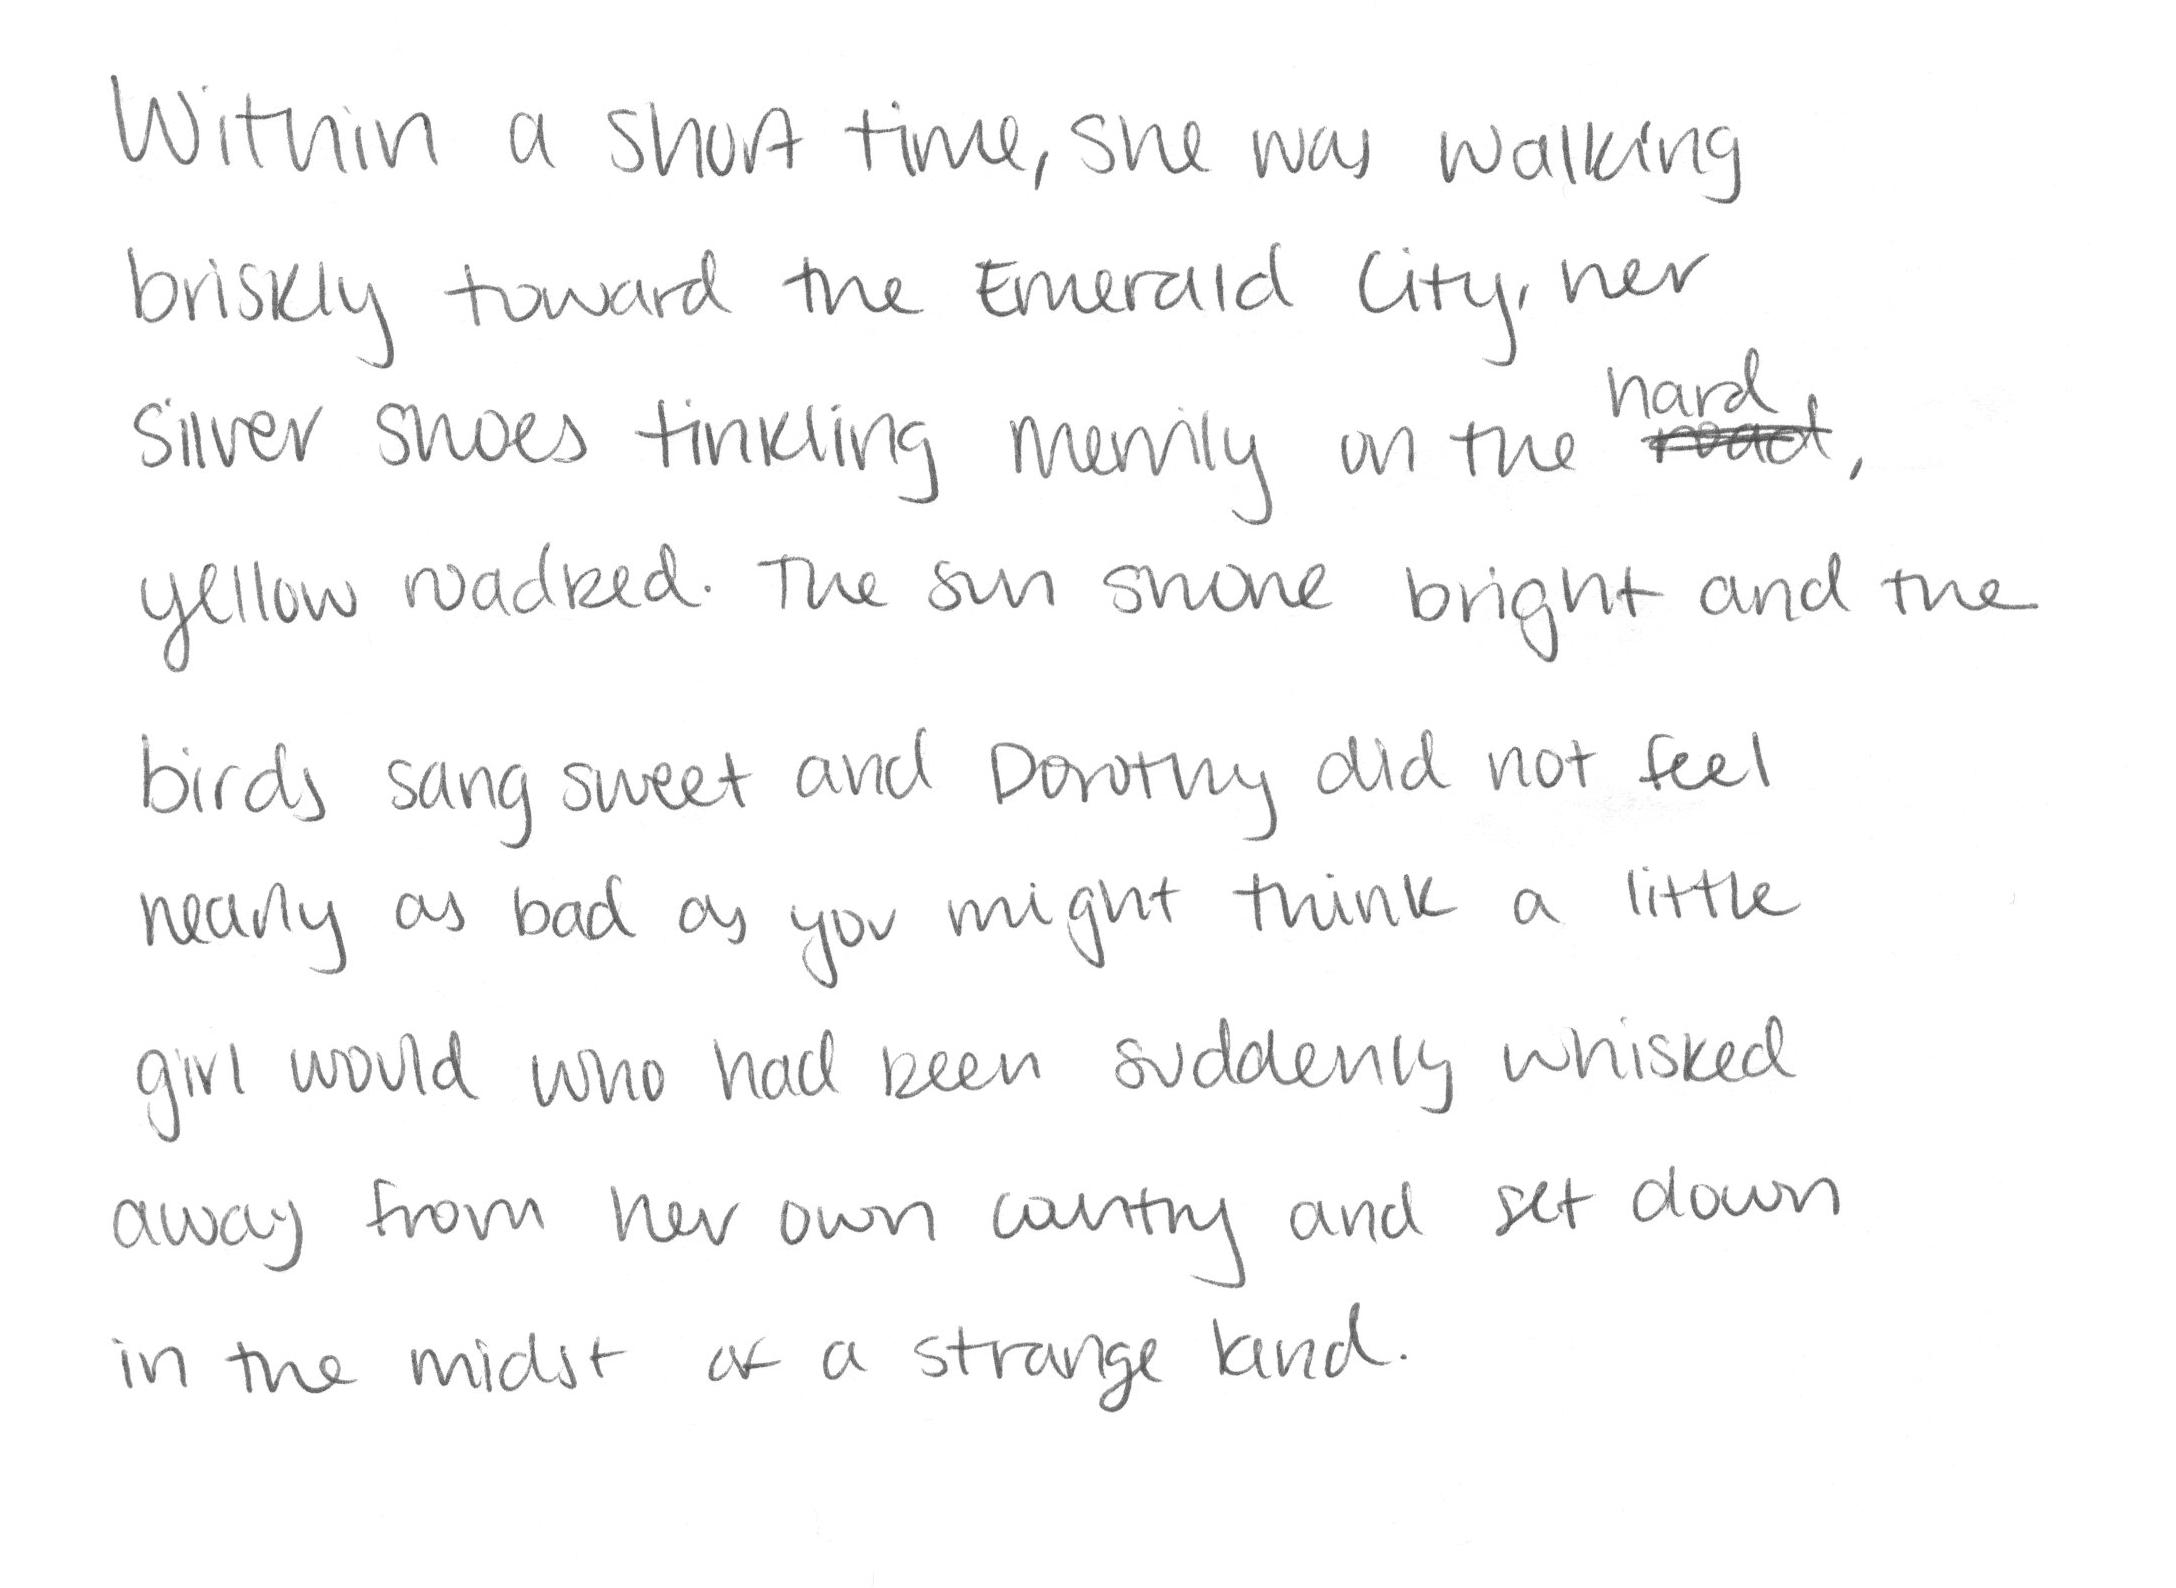 Within a short time, she was walking
briskly toward the Emerald City, her
silver shoes tinkling merrily on the hard,
yellow roadbed. The sun shone bright and the
birds sang sweet and Dorothy did not feel
nearly as bad as you might think a little
girl would who had been suddenly whisked
away from her own country and set down
in the midst of a strange land.